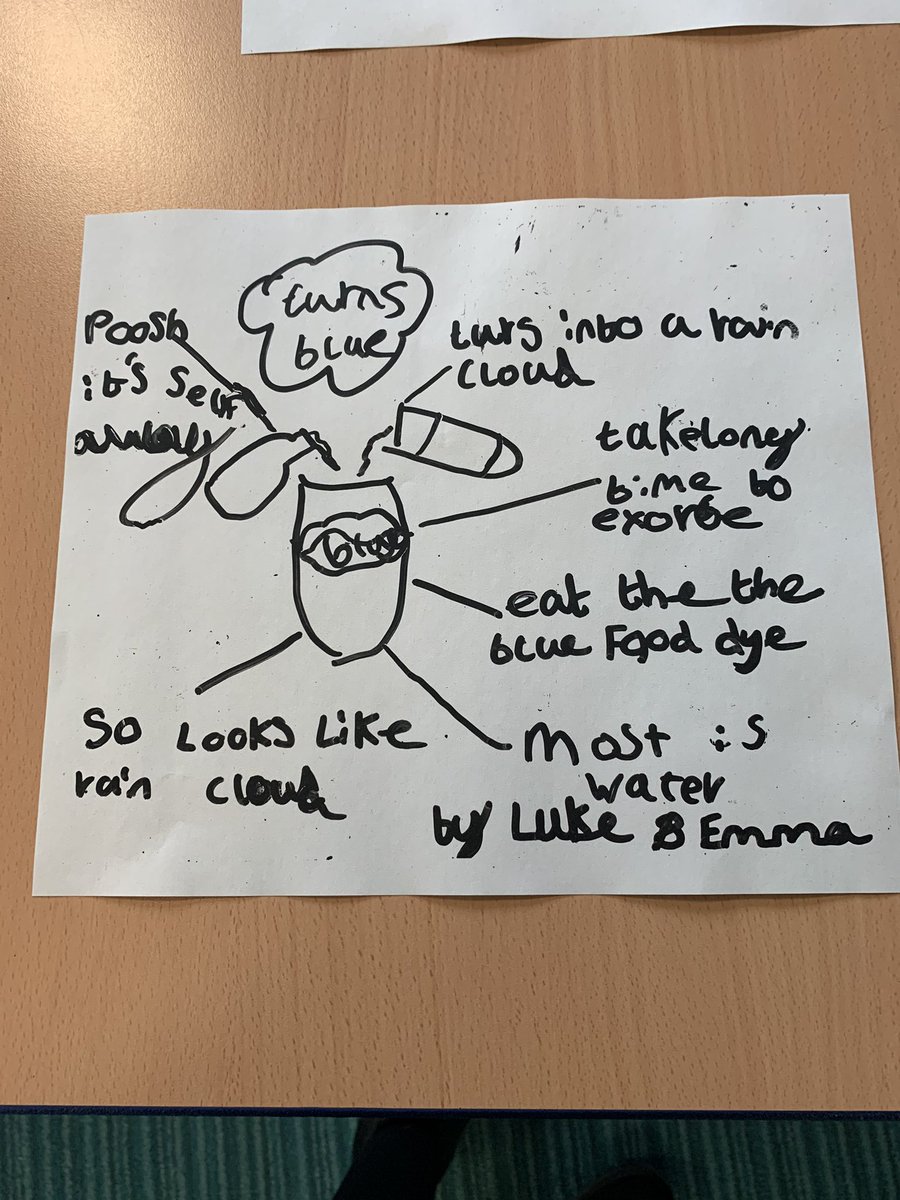 turns
blue
Poosh
it's self
turs into a rain
cloud
take long
time to
exorbe
blue
eat the the
blue Food dye
So Looks Like
rain cloud
Most is
water
by Luke & Emma